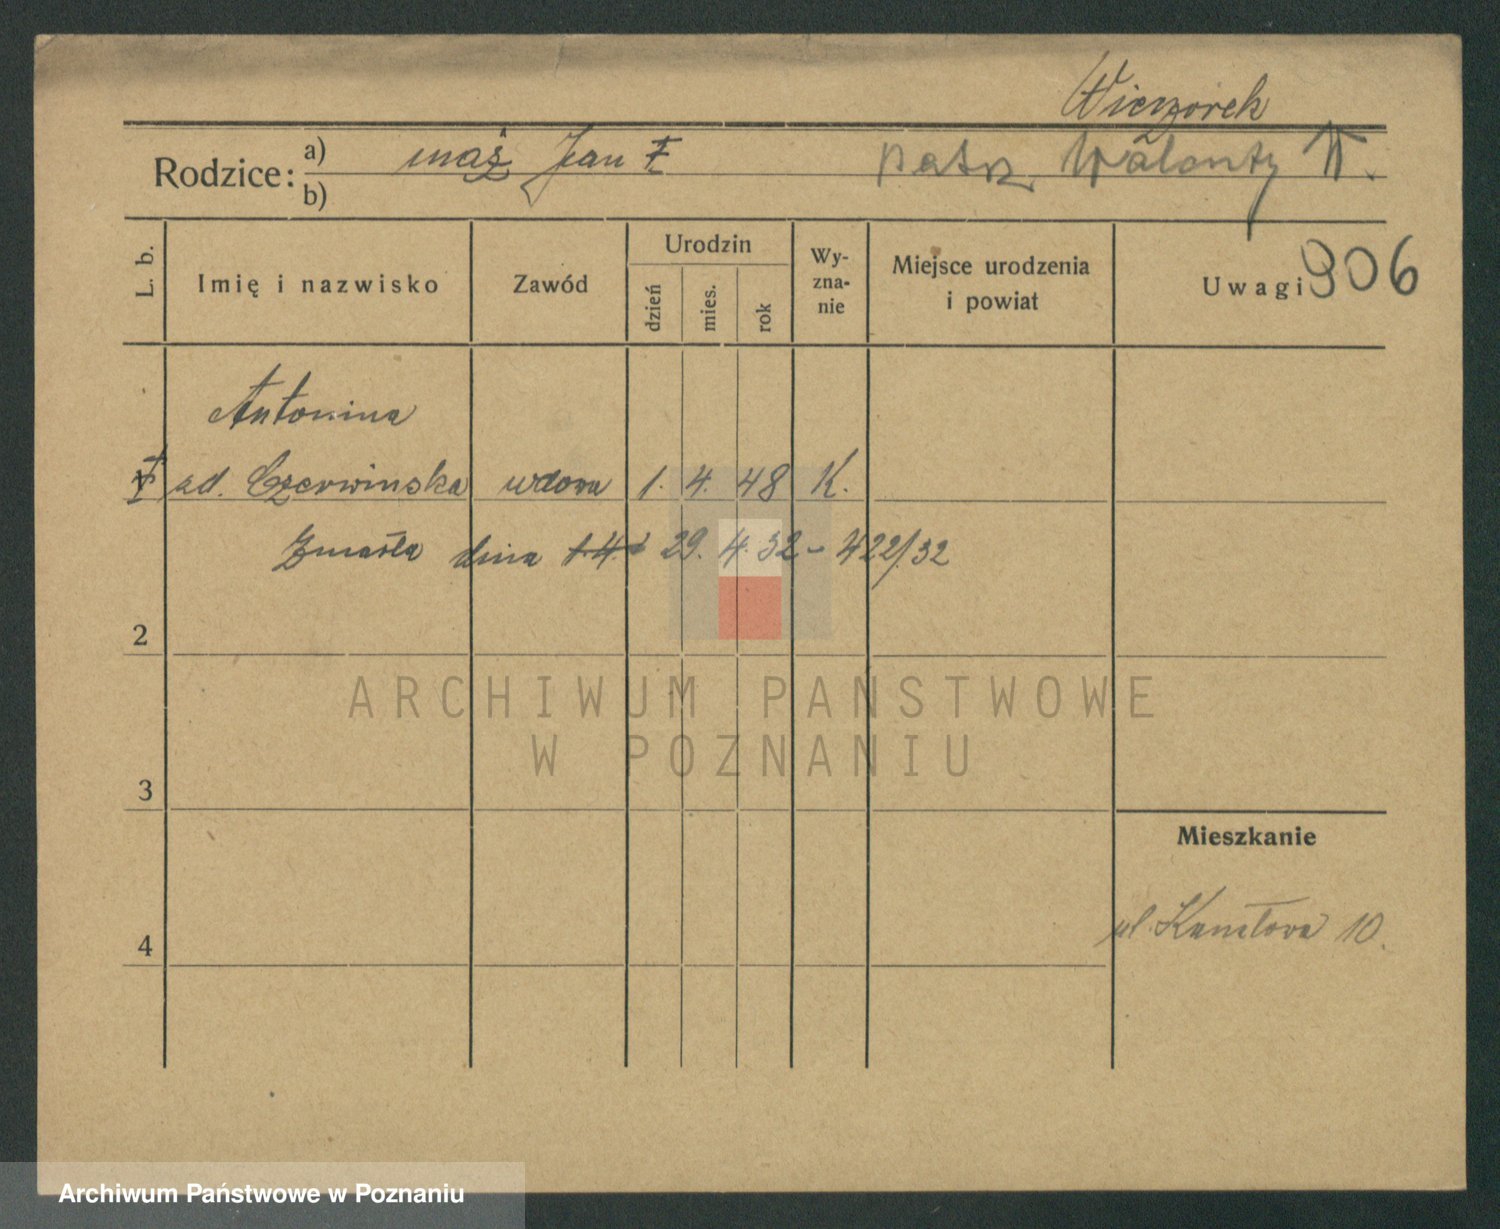 Wieczorek
Rodzice: a) mąż Jan patrz Walenty W.
b)
L. b.
Imię i nazwisko
Zawód
Urodzin
dzień
mies.
rok
Wy-
zna-
nie
Miejsce urodzenia
i powiat
Uwagi 906
Antonina
1 zd. Czerwinska wdowa 1. 4. 48 K.
Zmarła dnia 29. 4. 32 - 422/32
2
ARCHIWUM PAŃSTWOWE
W POZNANIU
3
Mieszkanie
ul. 10.
4
Archiwum Państwowe w Poznaniu